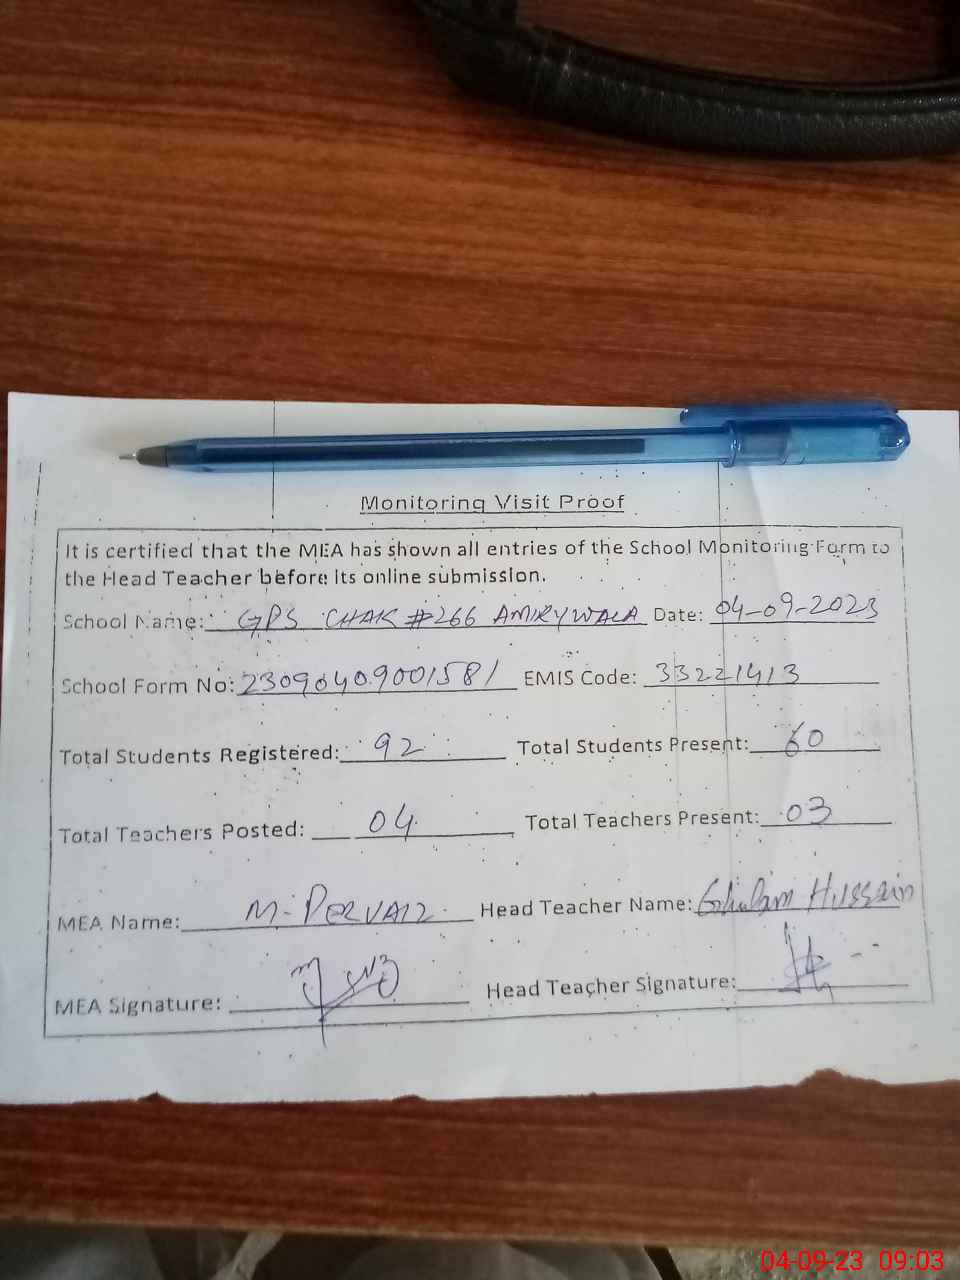 Monitoring Visit Proof
It is certified that the MEA has shown all entries of the School Monitoring Form to
the Head Teacher before its online submission.
School Name: GPS CHAK #266 AMIRYWALA Date: 04-09-2023
School Form No: 23090409001581 EMIS Code: 33221413
Total Students Registered: 92 Total Students Present: 60
Total Teachers Posted: 04 Total Teachers Present: 03
MEA Name: M. PERVAIZ Head Teacher Name: Ghulam Hussain
MEA Signature: Head Teacher Signature:
04-09-23 09:03